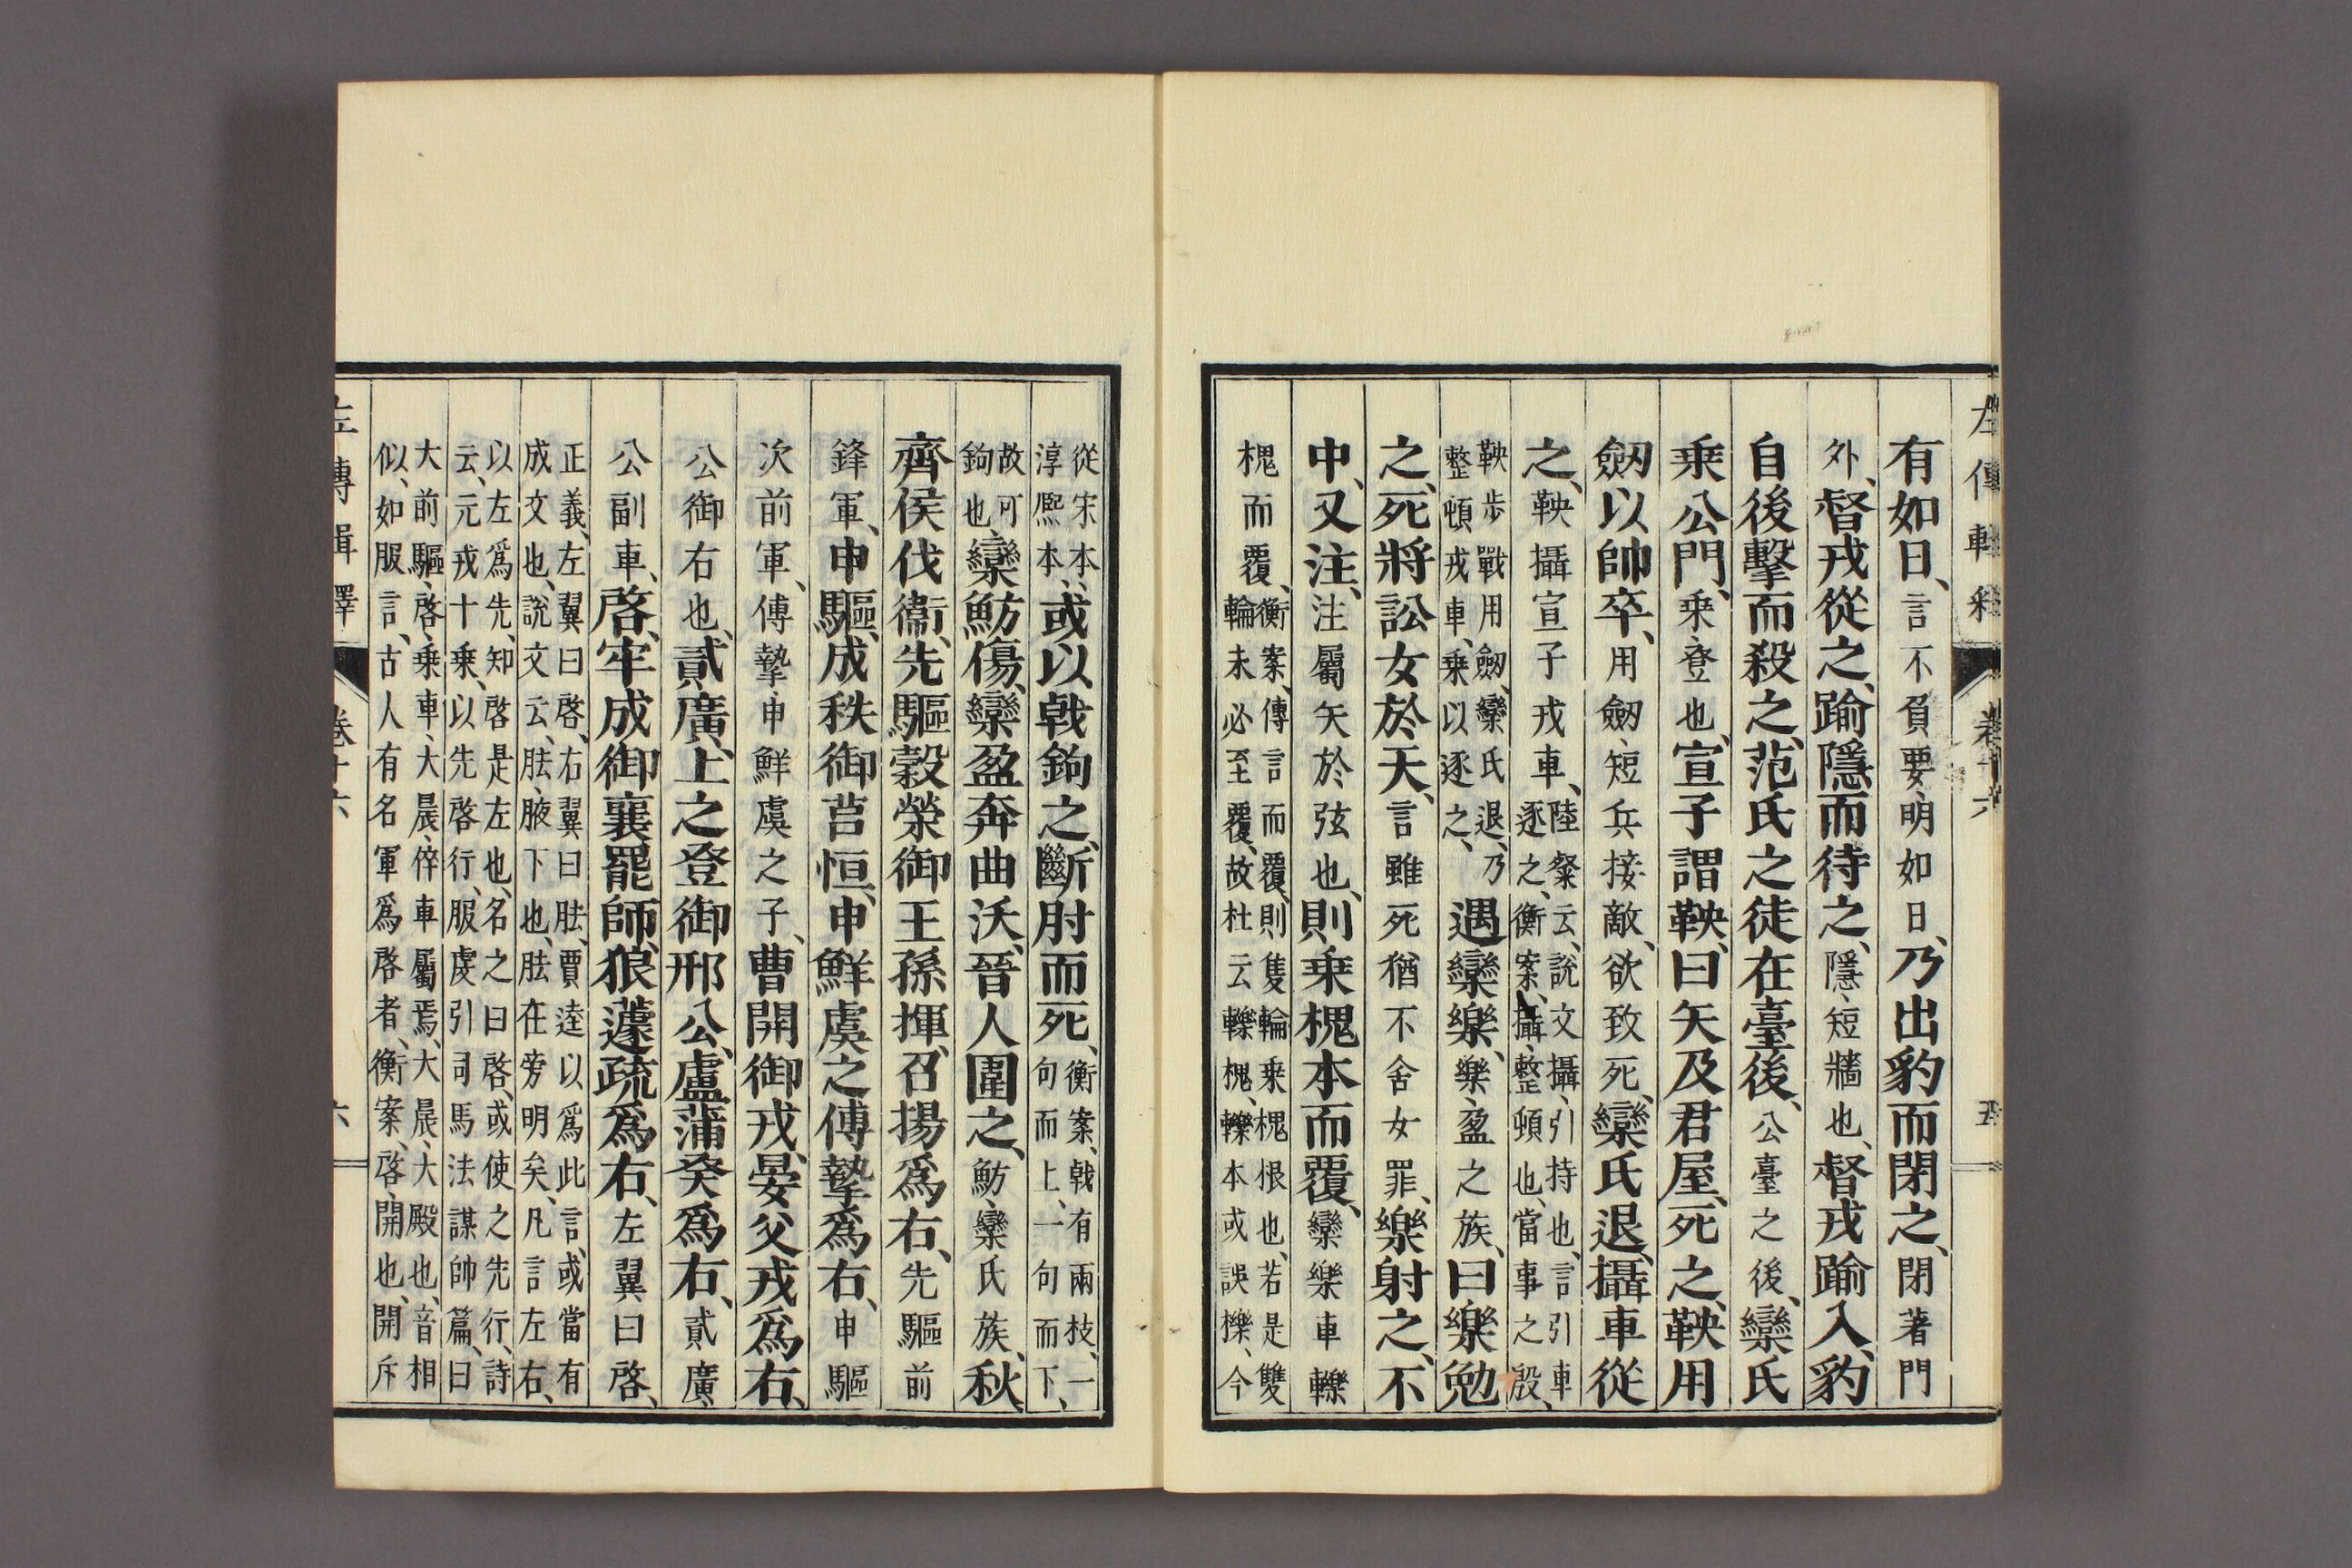 左傳輯釋 卷十六 五
有如日、言不負要、明如日、乃出豹而閉之、閉著門
外、督戎從之、踰隱而待之、隱、短牆也、督戎踰入、豹
自後擊而殺之、范氏之徒在臺後、公臺之後、欒氏
乘公門、乘、登也、宣子謂鞅、曰矢及君屋、死之、鞅用
劒以帥卒、用劒、短兵接敵、欲致死、欒氏退、攝車從
之、鞅攝宣子戎車、陸粲云、說文攝、引持也、言引車
逐之、衡案、攝、整頓也、當事之殷、
鞅步戰用劒、欒氏退、乃
整頓戎車、乘以逐之、遇欒樂、樂、盈之族、曰樂勉
之、死將訟女於天、言雖死猶不舍女罪、樂射之、不
中、又注、注屬矢於弦也、則乘槐本而覆、欒樂車轢
槐而覆、衡案、傳言而覆、則隻輪乘槐根也、若是雙
輪未必至覆、故杜云轢槐、轢本或誤擽、今
從宋本、
淳熙本、或以戟鉤之、斷肘而死、衡案、戟有兩枝、一
句而上、一句而下、
故可
鉤也、欒魴傷、欒盈奔曲沃、晉人圍之、魴、欒氏族、秋、
齊侯伐衞、先驅穀榮御王孫揮、召揚爲右、先驅前
鋒軍、申驅、成秩御莒恒、申鮮虞之傅摯爲右、申驅
次前軍、傅摯、申鮮虞之子、曹開御戎、晏父戎爲右、
公御右也、貳廣、上之登御邢公、盧蒲癸爲右、貳廣、
公副車、啓、牢成御襄罷師、狼蘧疏爲右、左翼曰啓、
正義、左翼曰啓、右翼曰胠、賈逵以爲此言、或當有
成文也、說文云、胠、腋下也、胠在旁明矣、凡言左右、
以左爲先、知啓是左也、名之曰啓、或使之先行、詩
云、元戎十乘、以先啓行、服虔引司馬法謀帥篇、曰
大前驅、啓、乘車、大晨、倅車屬焉、大晨、大殿也、音相
似、如服言、古人有名軍爲啓者、衡案、啓、開也、開斥
左傳輯釋 卷十六 六